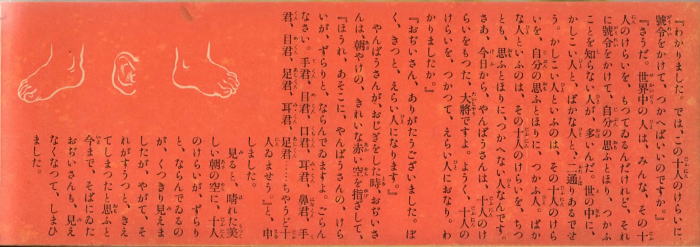 『わかりました。では、この十人のけらいに
號令をかけて、つかへばいいのですか。』
『さうだ。世界中の人は、みんな、その十
人のけらいを、もつてゐるんだけれど、それ
に號令をかけて、自分の思ふとほり、つかふ
ことを知らない人が、多いんだ。世の中に、
かしこい人と、ばかな人と、二通りあるでせ
う。かしこい人といふのは、その十人のけら
いを、自分の思ふとほりに、つかふ人。ばか
な人といふのは、その十人のけらいを、ちつ
とも、思ふとほりにつかへない人なんです。
さあ、今日から、やんぼうさんは、十人のけ
らいをもつた、大將ですよ。ようく、十人の
けらいを、つかつて、えらい人におなり。わ
かりましたか。』
『おぢいさん、ありがたうございました。ぼ
く、きつと、えらい人になります。』
やんぼうさんが、おじぎをした時、おぢいさ
んは、朝やけの、きれいな赤い空を指ざして、
『ほうれ、あそこに、やんぼうさんの、けら
いが、ずらりと、ならんでゐますよ。ごらん
なさい。手君、目君、口君、耳君、鼻君、手
君、目君、足君、耳君、足君……ちやうど十
人ゐませう。』と、申
しました。
見ると、晴れた美
しい、朝の空に、十人
のけらいが、ずらり
と、ならんでゐるの
が、くつきり見えま
したが、やがて、そ
れがすうつと、きえ
てしまつたと思ふと
今まで、そばにゐた
おぢいさんも、見え
なくなつて、しまひ
ました。